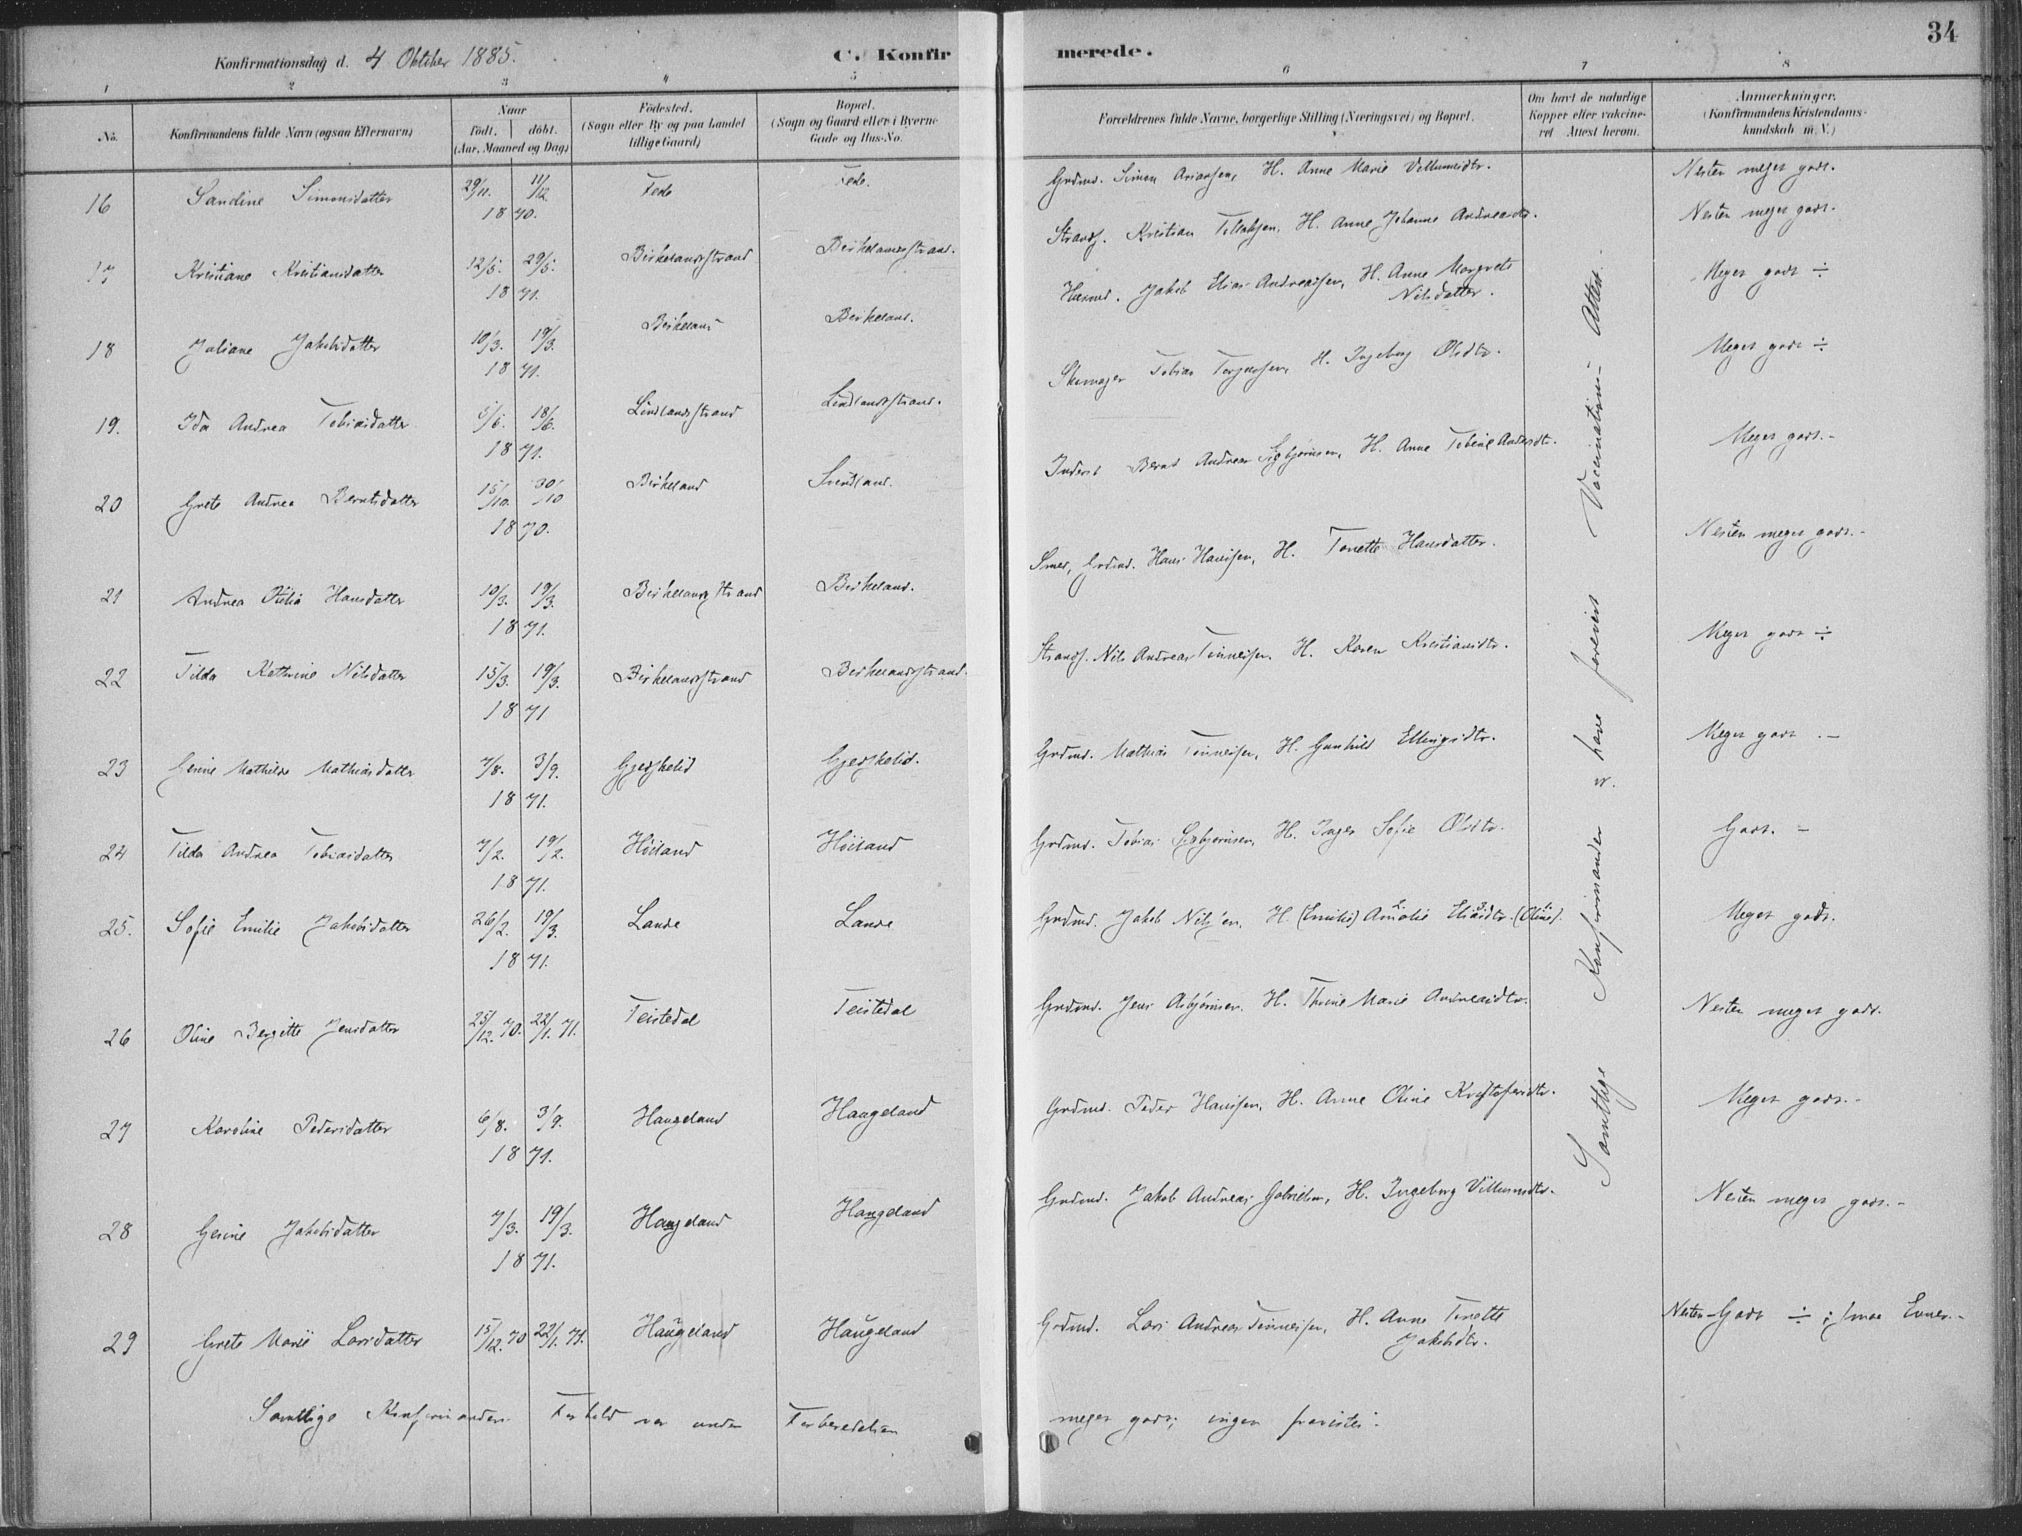 34
Konfirmationsdag d. 4 Oktober 1885.
C. Konfirmerede.
1 2 3 4 5 6 7 8
No.
Konfirmandens fulde Navn (ogsaa Efternavn)
Naar
født. døbt.
(Aar, Maaned og Dag)
Fødested.
(Sogn eller By og paa Landet
tillige Gaard)
Bopæl.
(Sogn og Gaard eller i Byerne
Gade og Hus-No.
Forældrenes fulde Navne, borgerlige Stilling (Næringsvei) og Bopæl.
Om havt de naturlige
Kopper eller vakcine-
ret Attest herom.
Anmærkninger.
(Konfirmandens Kristendoms-
kundskab m. V.)
16 Sandine Simonsdatter 29/11. 11/12 1870. Fede Fede. Grdmd. Simon H. Anne Marie Villumsdtr. Nesten meget godt.
17 Kristiane Kristiansdatter 12/5. 29/5. 1871. Birkelandsstrand Birkelandsstrand. Strands. Kristian Tollaksen, H. Anne Johanne Andreasdtr. Nesten meget godt.
18 Juliane Jakobsdatter 10/3. 19/3. 1871. Birkeland Birkeland. Husmd. Jakob Elias Andreassen, H. Anne Margrete
Nilsdatter. Meget godt ÷
19. Ida Andrea Tobiasdatter 5/6. 18/6. 1871. Lindlandsstrand Lindlandsstrand. Skomager Tobias Terjesen, H. Ingeborg Olsdtr. Meget godt ÷
20 Grete Andrea Berntsdatter 15/10. 30/10 1870. Birkeland Svindland. Inderst Bernt Andreas H. Anne Tobine Andersdtr. Meget godt.-
21 Andrea Otilia Hansdatter 10/3. 19/3. 1871. Birkelandsstrand Birkeland. Smed, Grdmd. Hans Hansen, H. Tonette Hansdatter. Nesten meget godt.-
22 Tilda Kathrine Nilsdatter 15/3. 19/3. 1871 Birkelandsstrand Birkelandsstrand. Strands. Nils Andreas Tønnesen. H. Karen Kristiansdtr. Meget godt ÷
23 Gesine Mathilde Mathiasdatter 7/8. 3/9. 1871. Gjerskelid Gjerskelid. Grdmd. Mathias Tønnesen, H. Gunhild Ellingsdtr. Meget godt .-
24 Tilda Andrea Tobiasdatter 7/2. 19/2. 1871. Höiland Höiland Grdmd. Tobias H. Inger Sofie Olsdtr. Godt. -
25. Sofie Emilie Jakobsdatter 26/2. 19/3. 1871. Lande Lande Grdmd. Jakob Nilsen, H. (Emilie) Amalie Eliasdtr. (Oline). Meget godt.
26 Oline Bergitte Jensdatter 25/12. 70. 22/1. 71. Teistedal Teistedal Grdmd. Jens Asbjørnsen. H. Thrine Marie Andreasdtr. Nesten meget godt.
27 Karoline Pedersdatter 6/8. 3/9. 1871. Haugeland Haugeland Grdmd. Peder Hansen, H. Anne Oline Kristofersdtr. Meget godt.-
28 Gesine Jakobsdatter 7/3. 19/3. 1871. Haugeland Haugeland Grdmd. Jakob Andreas Gabrielsen, H. Ingeborg Villumsdtr. Nesten meget godt.-
29 Grete Marie Larsdatter 15/12. 70 22/1. 71. Haugeland Haugeland Grdmd. Lars Andreas Tønnesen, H. Anne Tonette
Jakobsdtr. Nesten Godt ÷ ; smaa Evner.-
Samtlige Konfirmander have forevist Vaccinations-Attest.
Samtlige Konfirmanders Forhold var under Forberedelsen meget godt; ingen